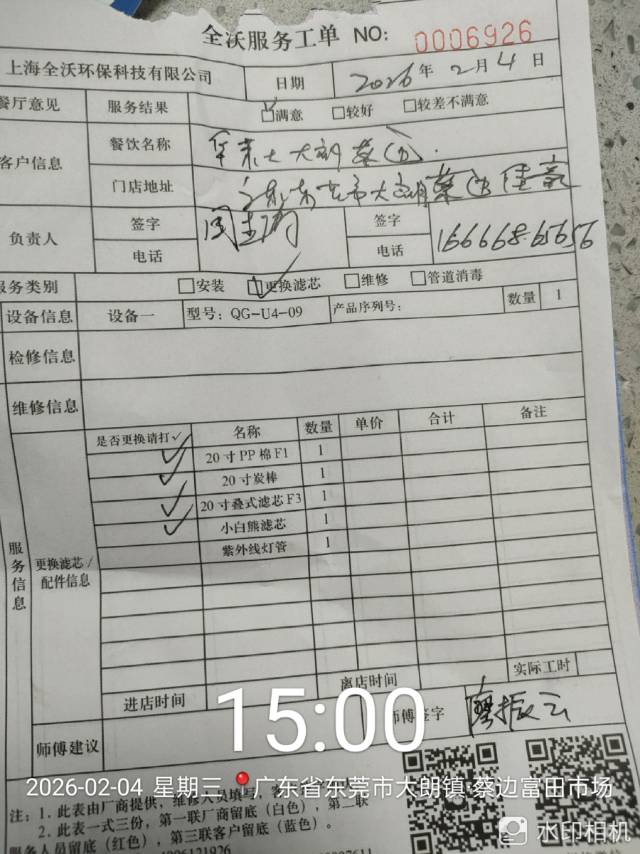 全沃服务工单 NO: 0006926
上海全沃环保科技有限公司 日期 2026年2月4日
餐厅意见 服务结果 ☑满意 □较好 □较差不满意
客户信息 餐饮名称 大朗蔡边
门店地址 广东东莞市大朗蔡边
负责人 签字 签字
电话 电话 166668-65656
服务类别 □安装 ☑更换滤芯 □维修 □管道消毒
设备信息 设备一 型号: QG-U4-09 产品序列号: 数量 1
检修信息
维修信息
服务信息
更换滤芯/配件信息
是否更换请打✓ 名称 数量 单价 合计 备注
✓ 20寸PP棉F1 1
✓ 20寸炭棒 1
✓ 20寸叠式滤芯F3 1
✓ 小白熊滤芯 1
紫外线灯管 1
进店时间 离店时间 实际工时
师傅建议 师傅签字 振云
15:00
2026-02-04 星期三 广东省东莞市大朗镇·蔡边富田市场
注: 1. 此表由厂商提供, 维修人员填写
2. 此表一式三份, 第一联厂商留底(白色), 第二联
服务人员留底(红色), 第三联客户留底(蓝色)。
水印相机